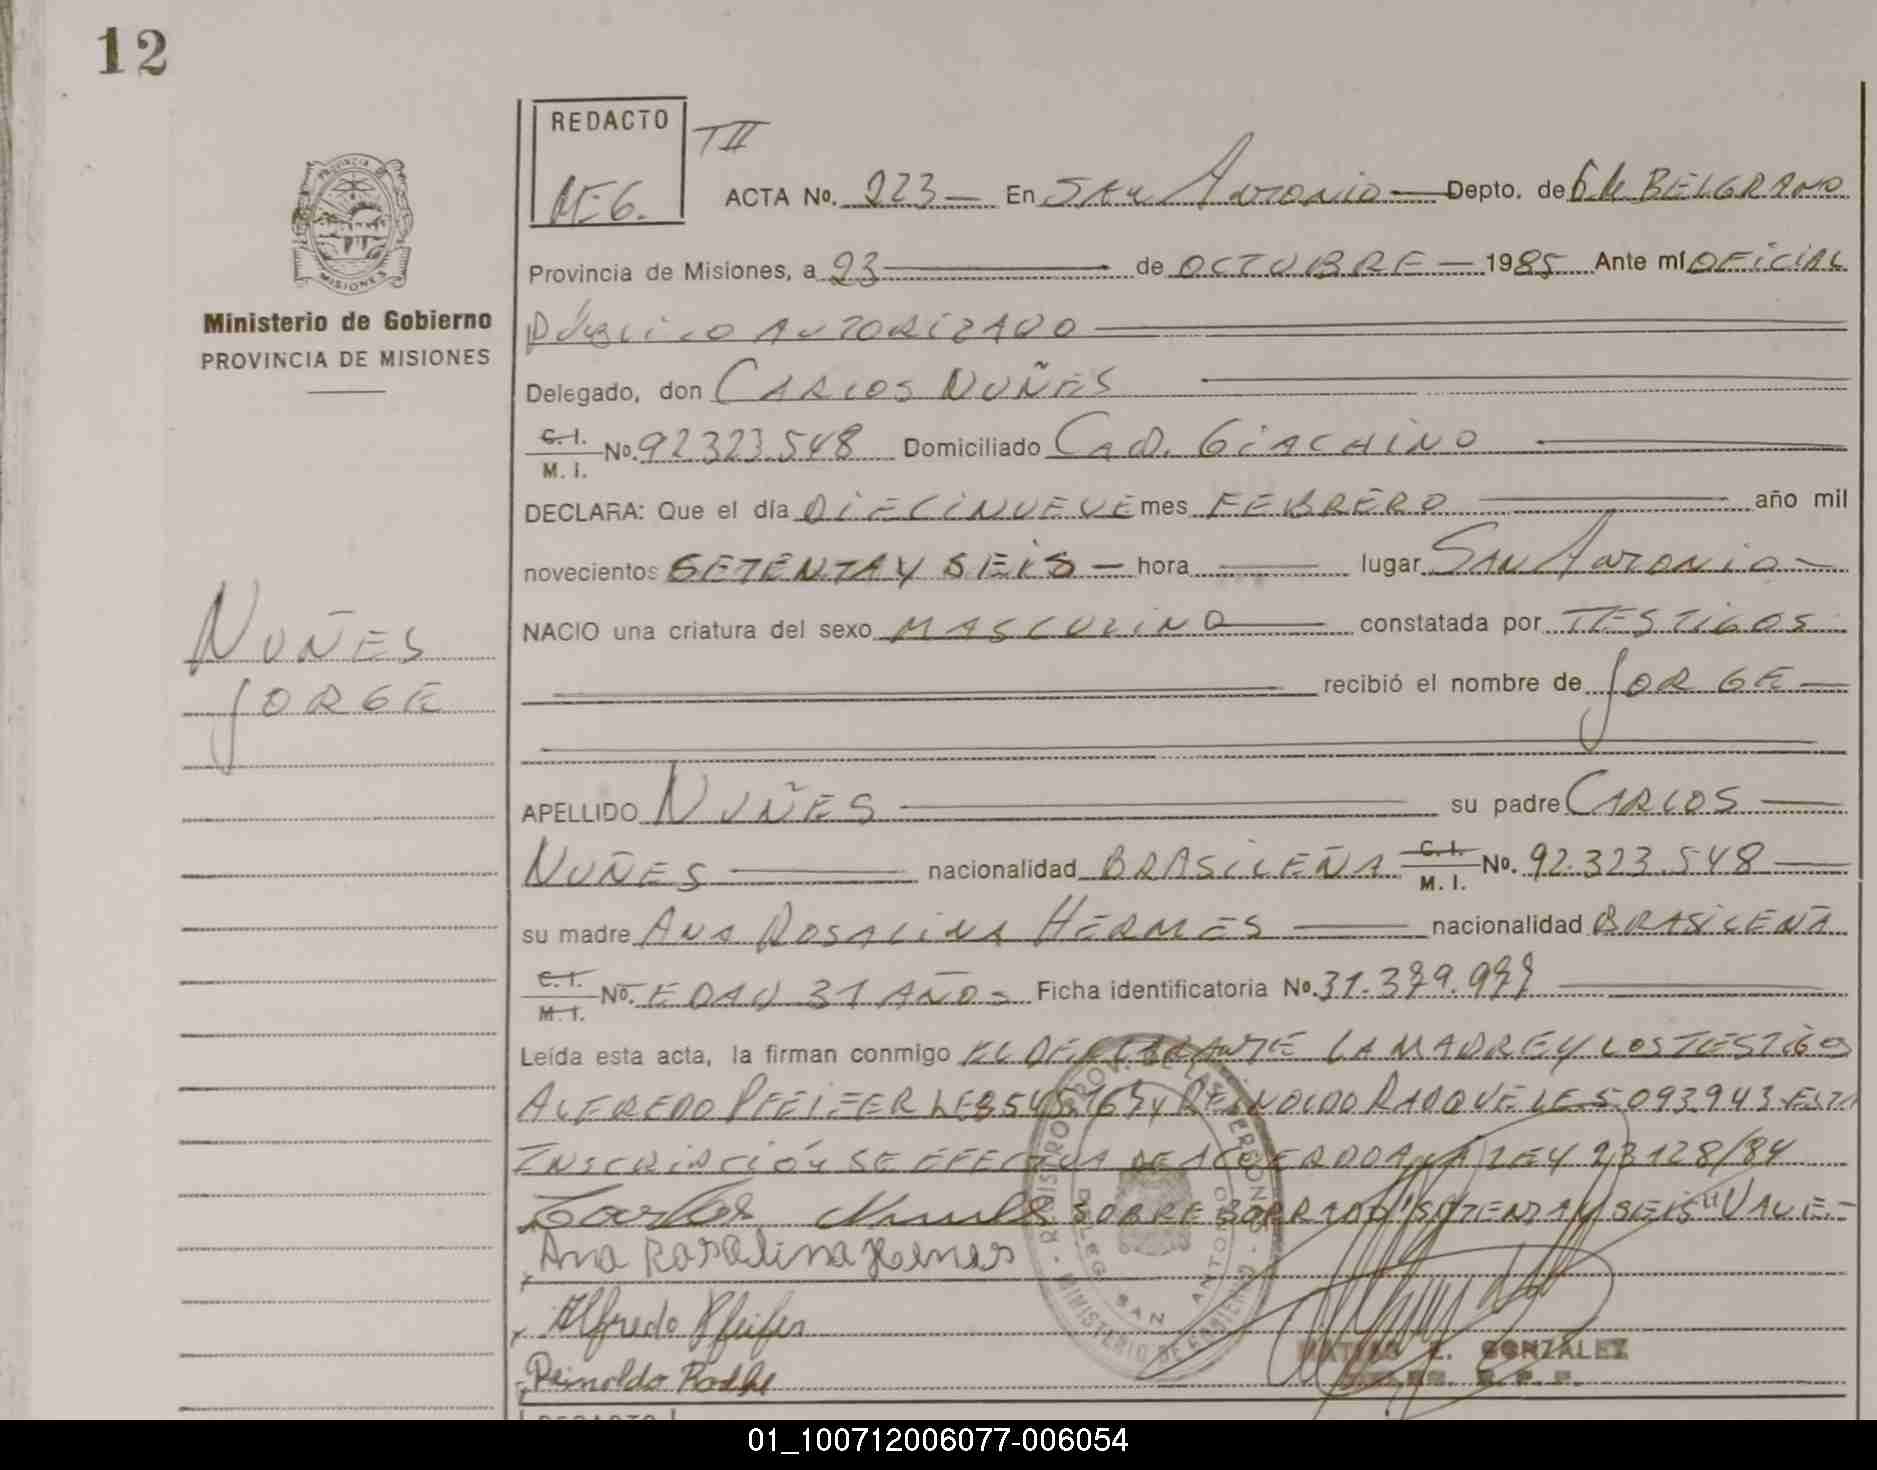 12
REDACTO
TII
ACTA No. 223 En SAN ANTONIO Depto. de G. M. BELGRANO
Provincia de Misiones, a 23 de OCTUBRE 1985 Ante mí OFICIAL
PROVINCIA DE
MISIONES
Ministerio de Gobierno
PROVINCIA DE MISIONES
PÚBLICO AUTORIZADO
Delegado, don CARLOS NUÑES
C. I. M. I. No. 92.323.548 Domiciliado CAP. GIACHINO
DECLARA: Que el día DIECINUEVE mes FEBRERO año mil
novecientos SETENTA Y SEIS hora lugar SAN ANTONIO
NUÑES
JORGE
NACIO una criatura del sexo MASCULINO constatada por TESTIGOS
recibió el nombre de JORGE
APELLIDO NUÑES su padre CARLOS
NUÑES nacionalidad BRASILEÑA C. I. M. I. No. 92.323.548
su madre ANA ROSALINA HERMES nacionalidad BRASILEÑA
C. I. M. I. No. EDAD 31 AÑOS Ficha identificatoria No. 31.379.977
Leída esta acta, la firman conmigo EL DECLARANTE LA MADRE Y LOS TESTIGOS
ALFREDO PFEIFER Y REINOLDO RADQUE L.E. 5093943 ESTA
INSCRIPCIÓN SE EFECTUA DE ACUERDO A LA LEY 23128/84
Carlos SOBRE BORRADO "SETENTA Y SEIS" VALE.-
Ana Rosalina Hermes
Alfredo Pfeifer
Reinoldo Radke
REGISTRO PROV. DE LAS PERSONAS
MINISTERIO DE GOBIERNO
DELEG. SAN ANTONIO
E. GONZALEZ
REDACTO
01_100712006077-006054